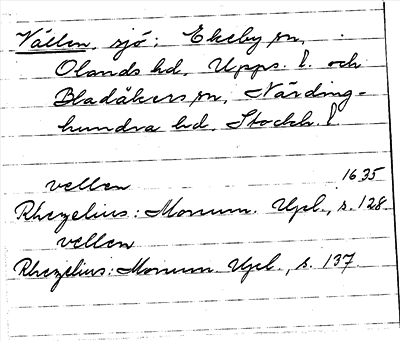 Vällen, sjö; Ekeby sn,
Olands hd, Upps. l. och
Bladåkers sn, Närding-
hundra hd, Stockh. l
vellen 1635
Rhezelius: Monum. Upl., s. 128.
vellen
Rhezelius: Monum. Upl., s. 137.